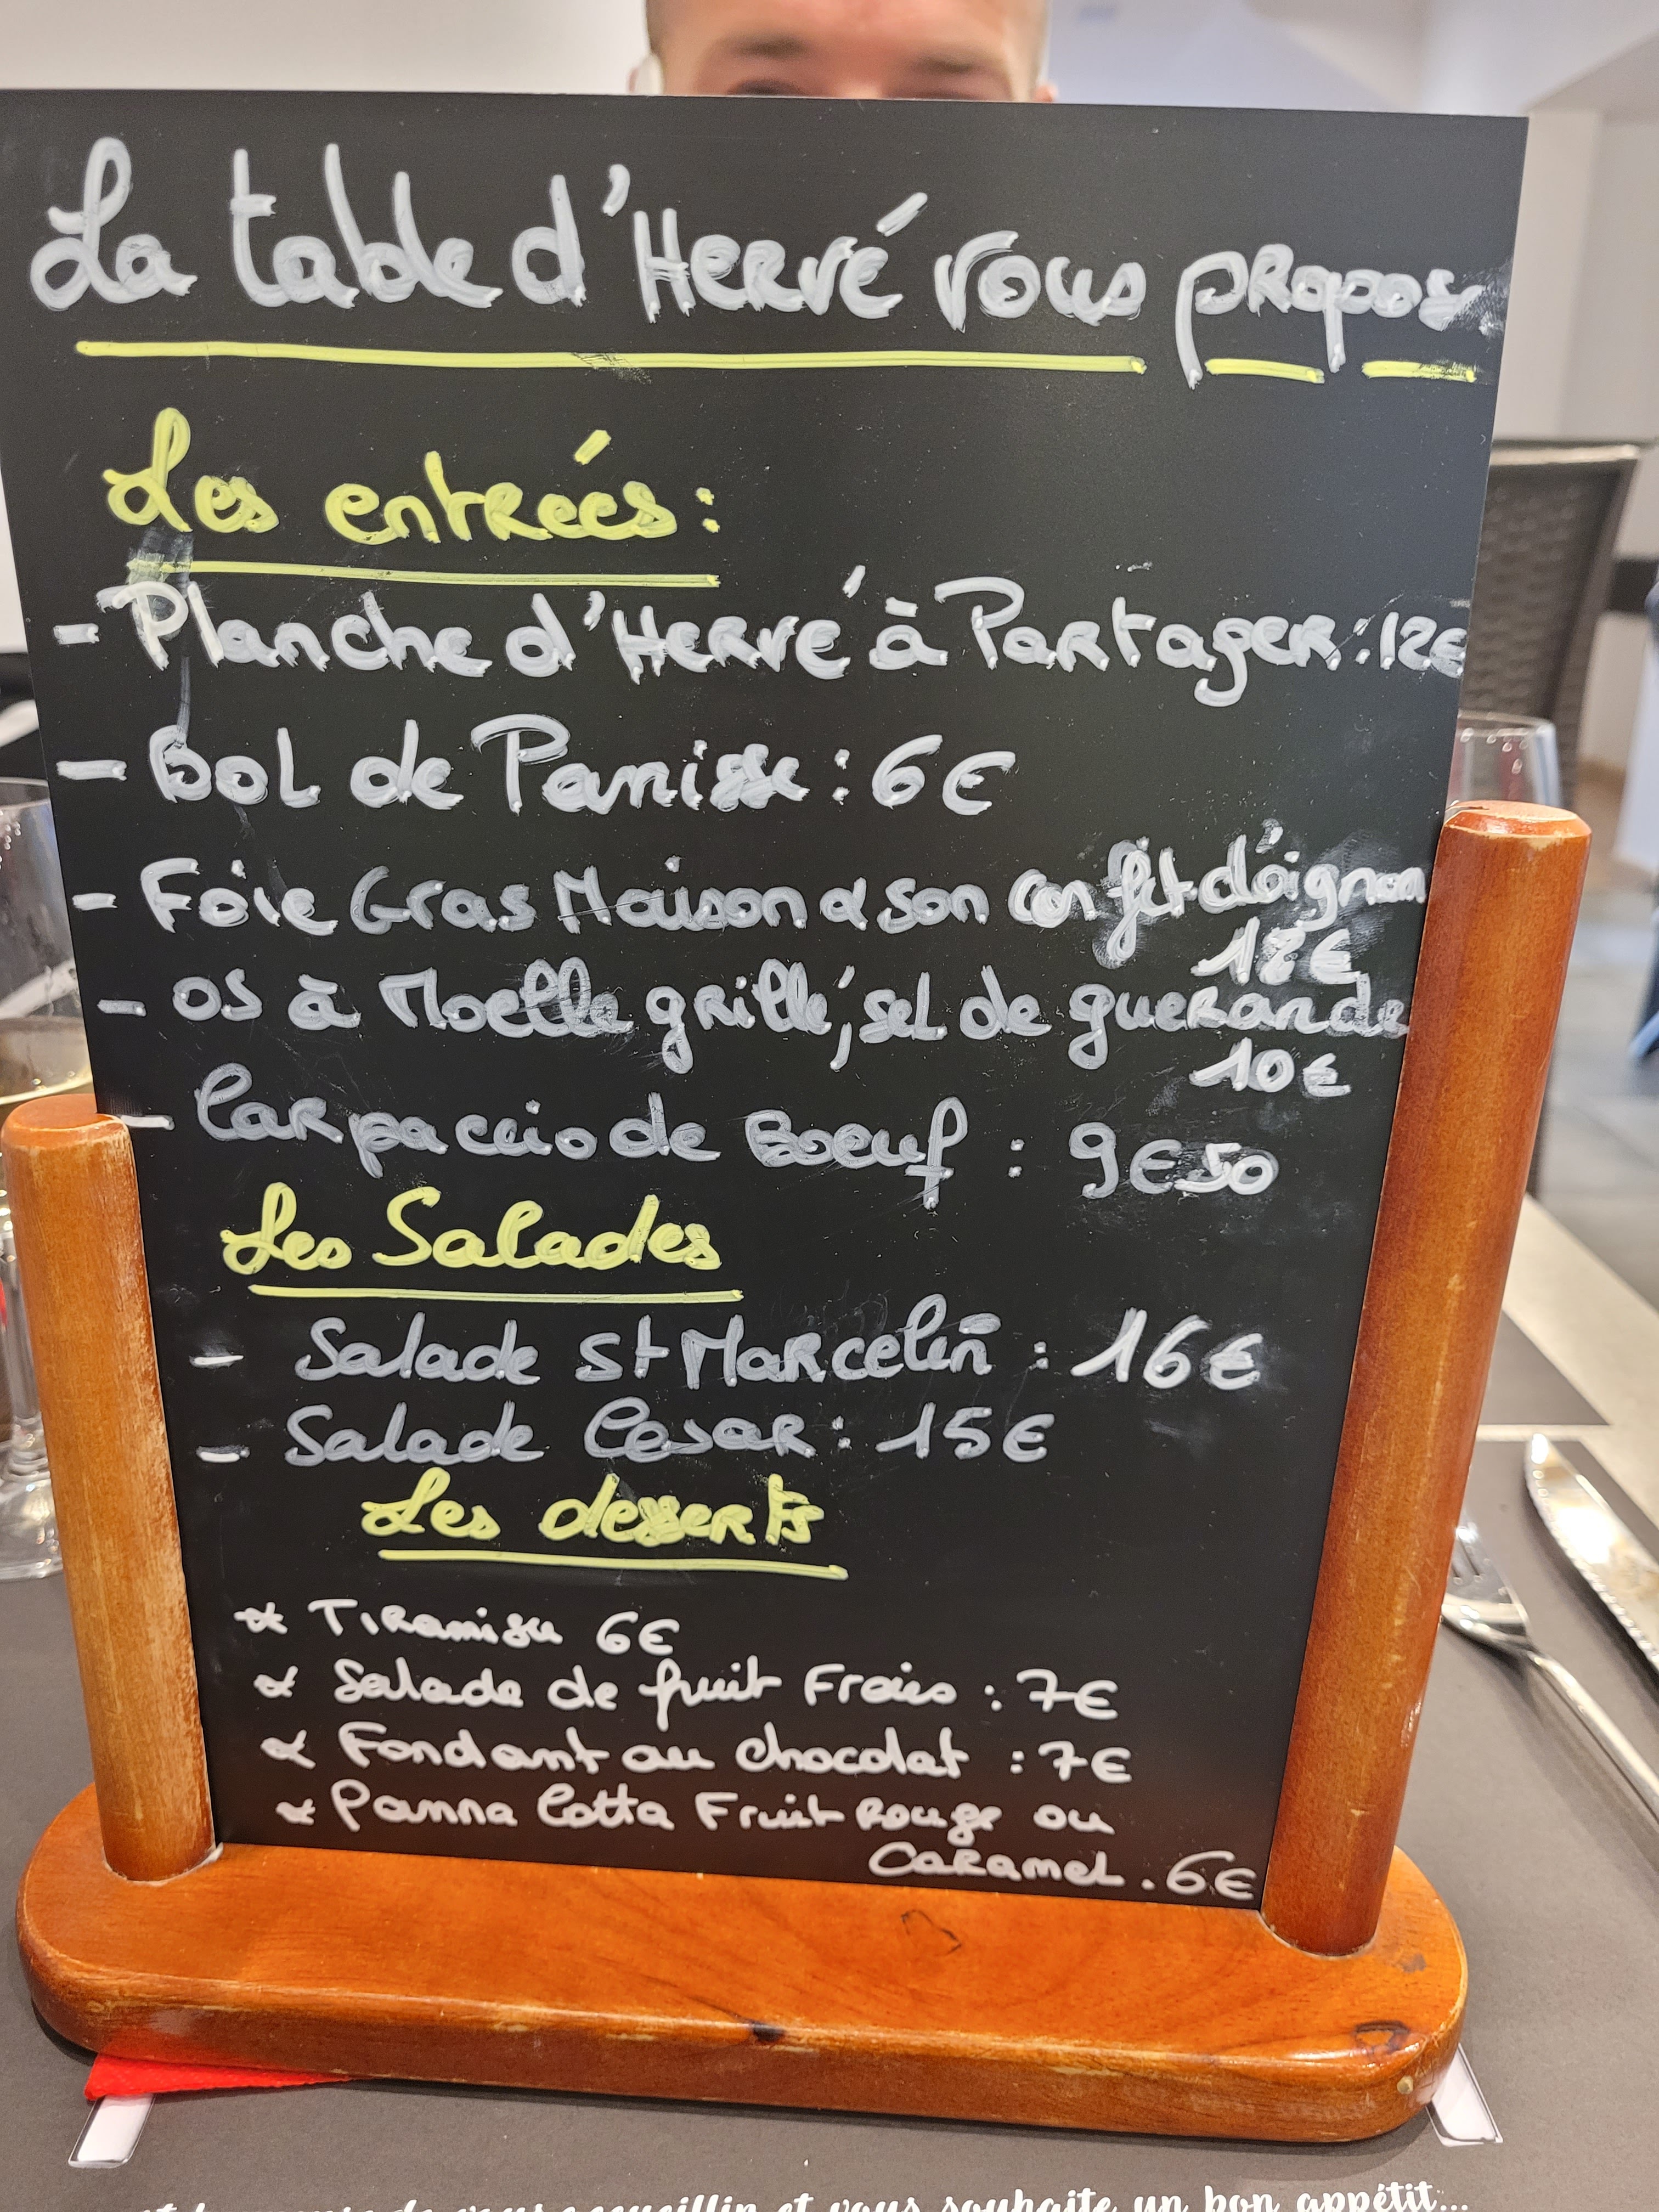 La table d'Hervé vous propose
Les entrées :
- Planche d'Hervé à Partager : 12€
- Bol de Panisse : 6€
- Foie Gras Maison & son confit d'oignon
12€
- OS à Moelle grillé, sel de guerande
10€
- Carpaccio de Boeuf : 9€50
Les Salades
- Salade St Marcelin : 16€
- Salade Cesar : 15€
Les desserts
* Tiramisu 6€
* Salade de fruit Frais : 7€
* Fondant au chocolat : 7€
* Panna Cotta Fruit Rouge ou
Caramel . 6€
de vous accueillir et vous souhaite un bon appétit...